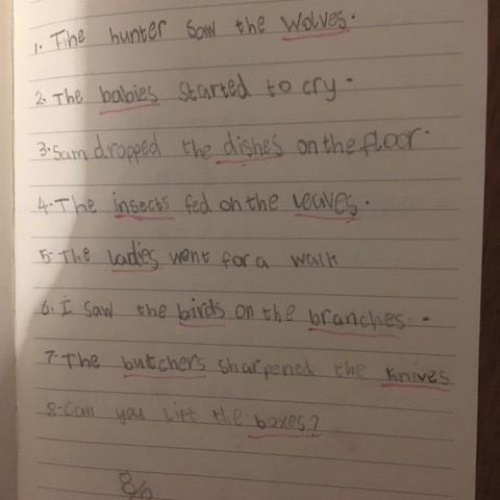 1. The hunter saw the wolves.
2. The babies started to cry.
3. Sam dropped the dishes on the floor.
4. The insects fed on the leaves.
5. The ladies went for a walk
6. I saw the birds on the branches.
7. The butchers sharpened the knives
8. Can you lift the boxes?